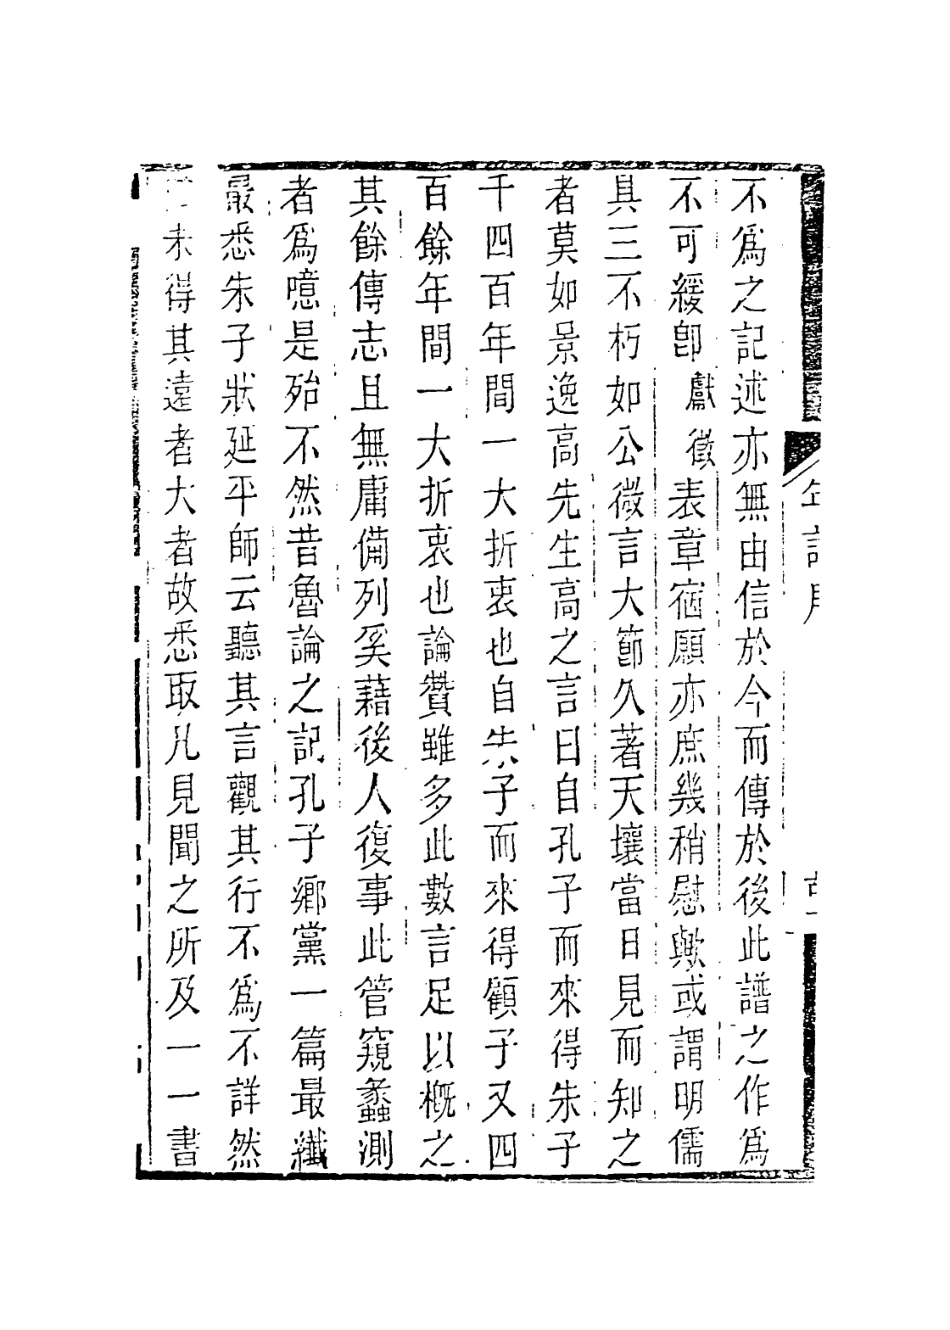 年譜序
不為之記述亦無由信於今而傳於後此譜之作為
不可緩卽獻徵表章宿願亦庶幾稍慰歟或謂明儒
具三不朽如公微言大節久著天壤當日見而知之
者莫如景逸高先生高之言曰自孔子而來得朱子
千四百年間一大折衷也自朱子而來得顧子又四
百餘年間一大折衷也論贊雖多此數言足以概之
其餘傳志且無庸備列奚藉後人復事此管窺蠡測
者為噫是殆不然昔魯論之記孔子鄉黨一篇最纖
最悉朱子狀延平師云聽其言觀其行不為不詳然
未得其遠者大者故悉取凡見聞之所及一一書